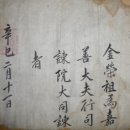 金榮祖爲嘉
善大夫行司
諫院大司諫
者
辛巳二月十一日